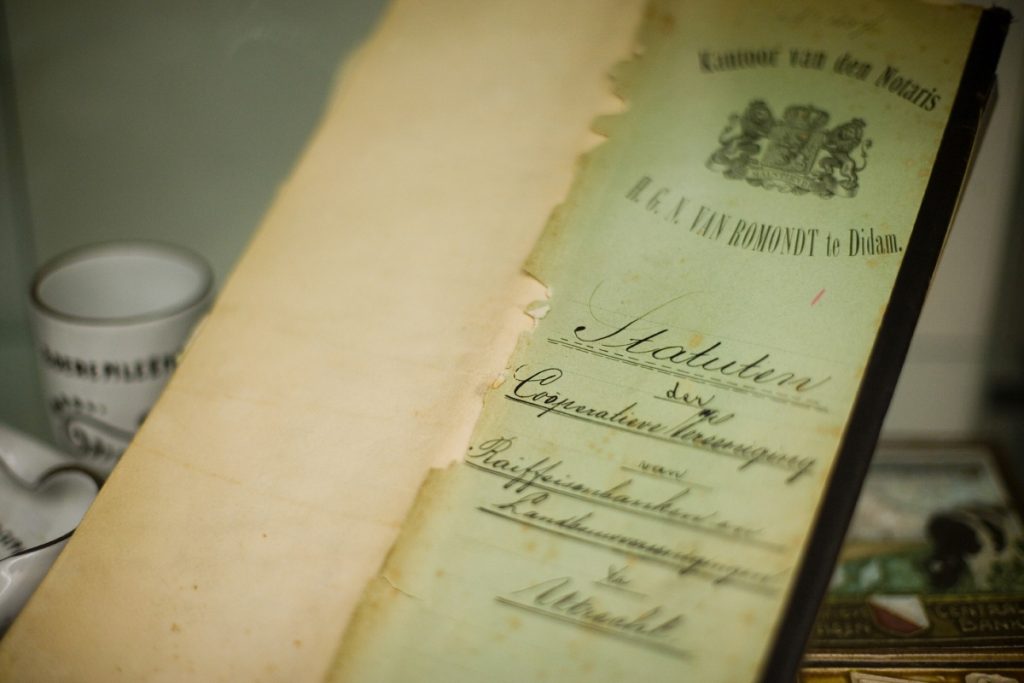 Kantoor van den Notaris
H. G. N. VAN ROMONDT te Didam.
Statuten
der
Coöperatieve Vereeniging
van
Raiffeisenbanken en
Landbouwvereenigingen
te
Utrecht
CENTRALE
BANK